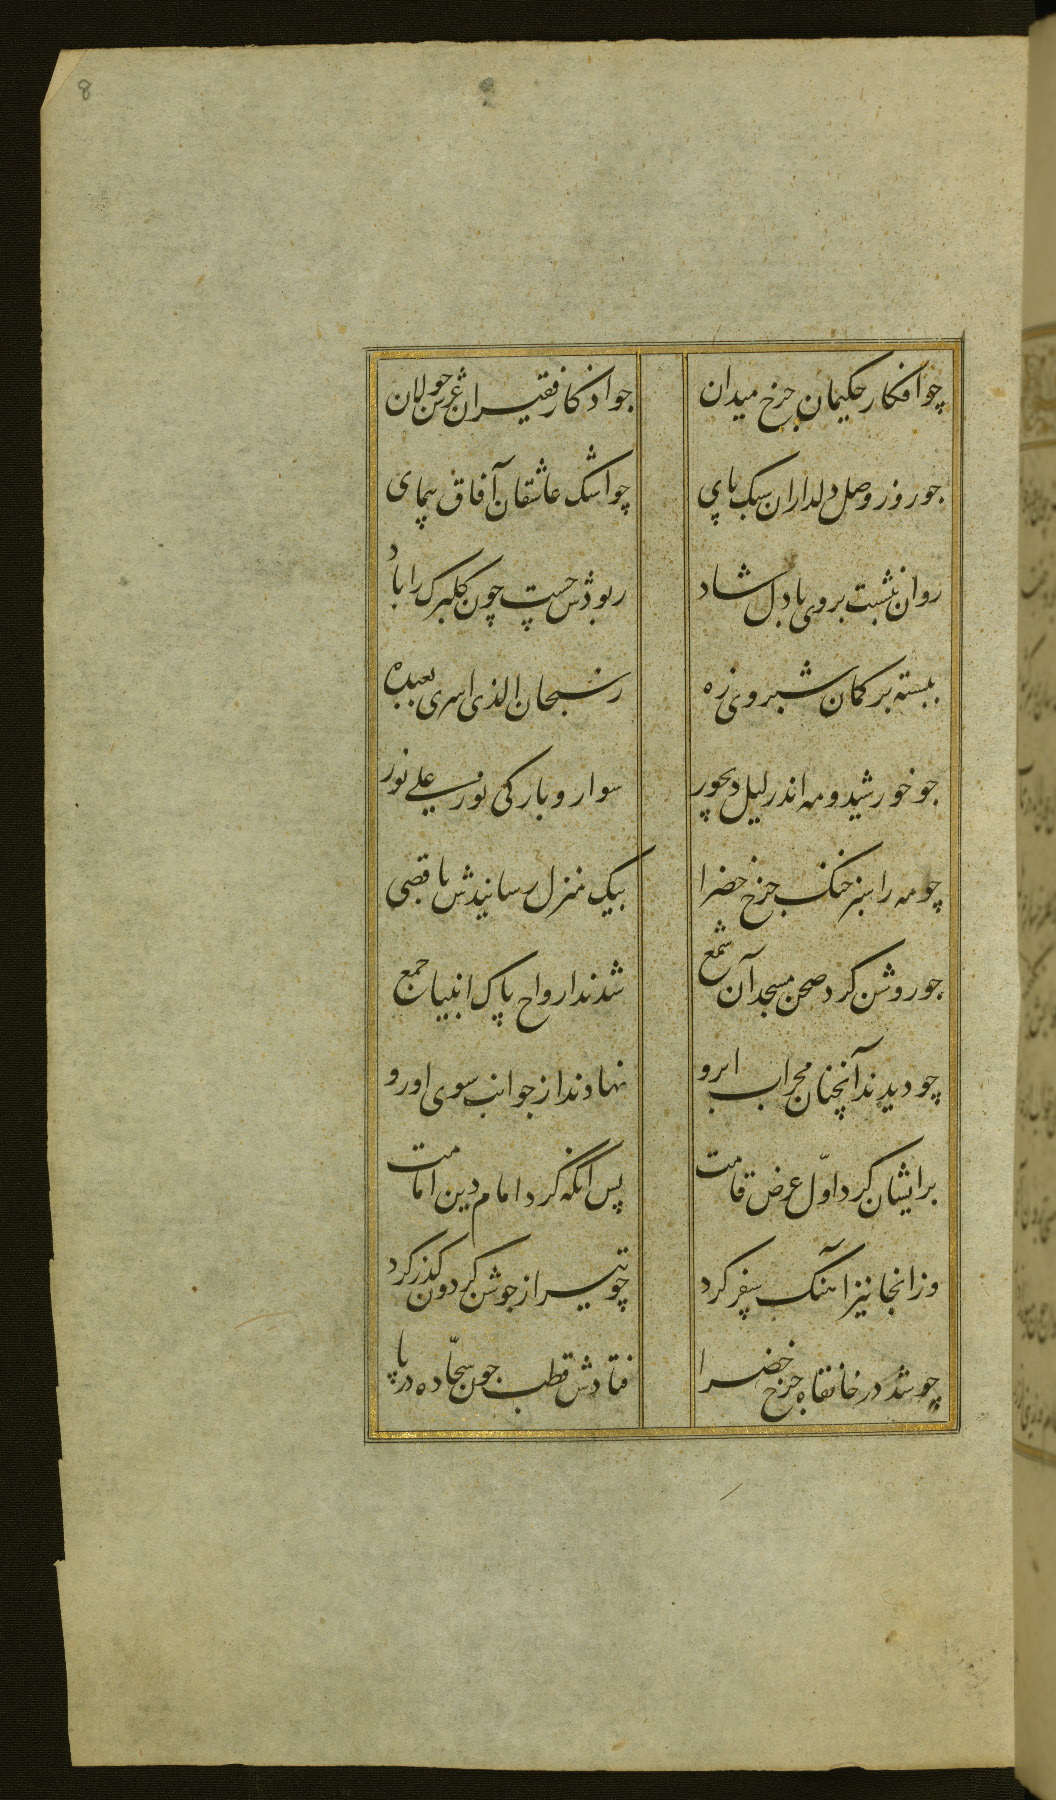 8
چو افکار حکیمان چرخ میدان
چو اذکار فقیران عرش جولان
چو روز وصل دلداران سبک پای
چو اشک عاشقان آفاق پیمای
روان بنشست بر وی با دل شاد
ربودش چست چون گلبرگ را باد
ببسته بر کمان شبروی زه
ز سبحان الذی اسری بعبده
چو خورشید و مه اندر لیل دیجور
سوار و بارگی نور علی نور
چو مه را سبز خنک چرخ خضرا
بیک منزل رسانیدش باقصی
چو روشن کرد صحن مسجد آن شمع
شدند ارواح پاک انبیا جمع
چو دیدند آنچنان محراب ابرو
نهادند از جوانب سوی او رو
برایشان کرد اوّل عرض قامت
پس آنگه کرد امام دین امامت
وز آنجا نیز آهنگ سفر کرد
چو تیر از جوشن گردون گذر کرد
چو شد در خانقاه چرخ خضرا
فتادش قطب چون سجّاده در پا